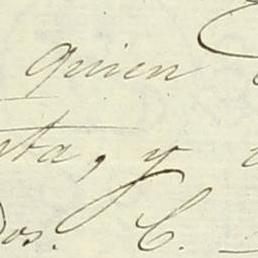 quien
ta, y
os. C.